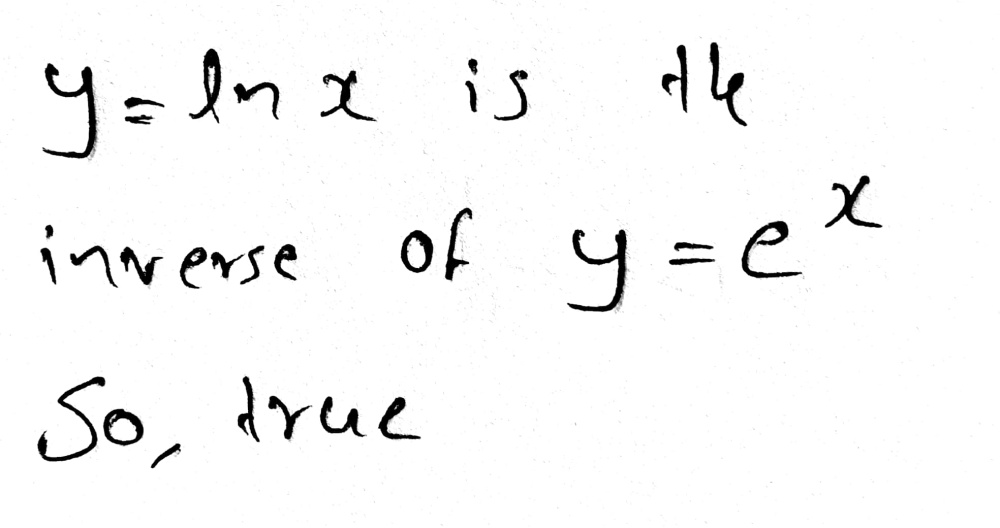 y = ln x is the
inverse of y = e^x
So, true